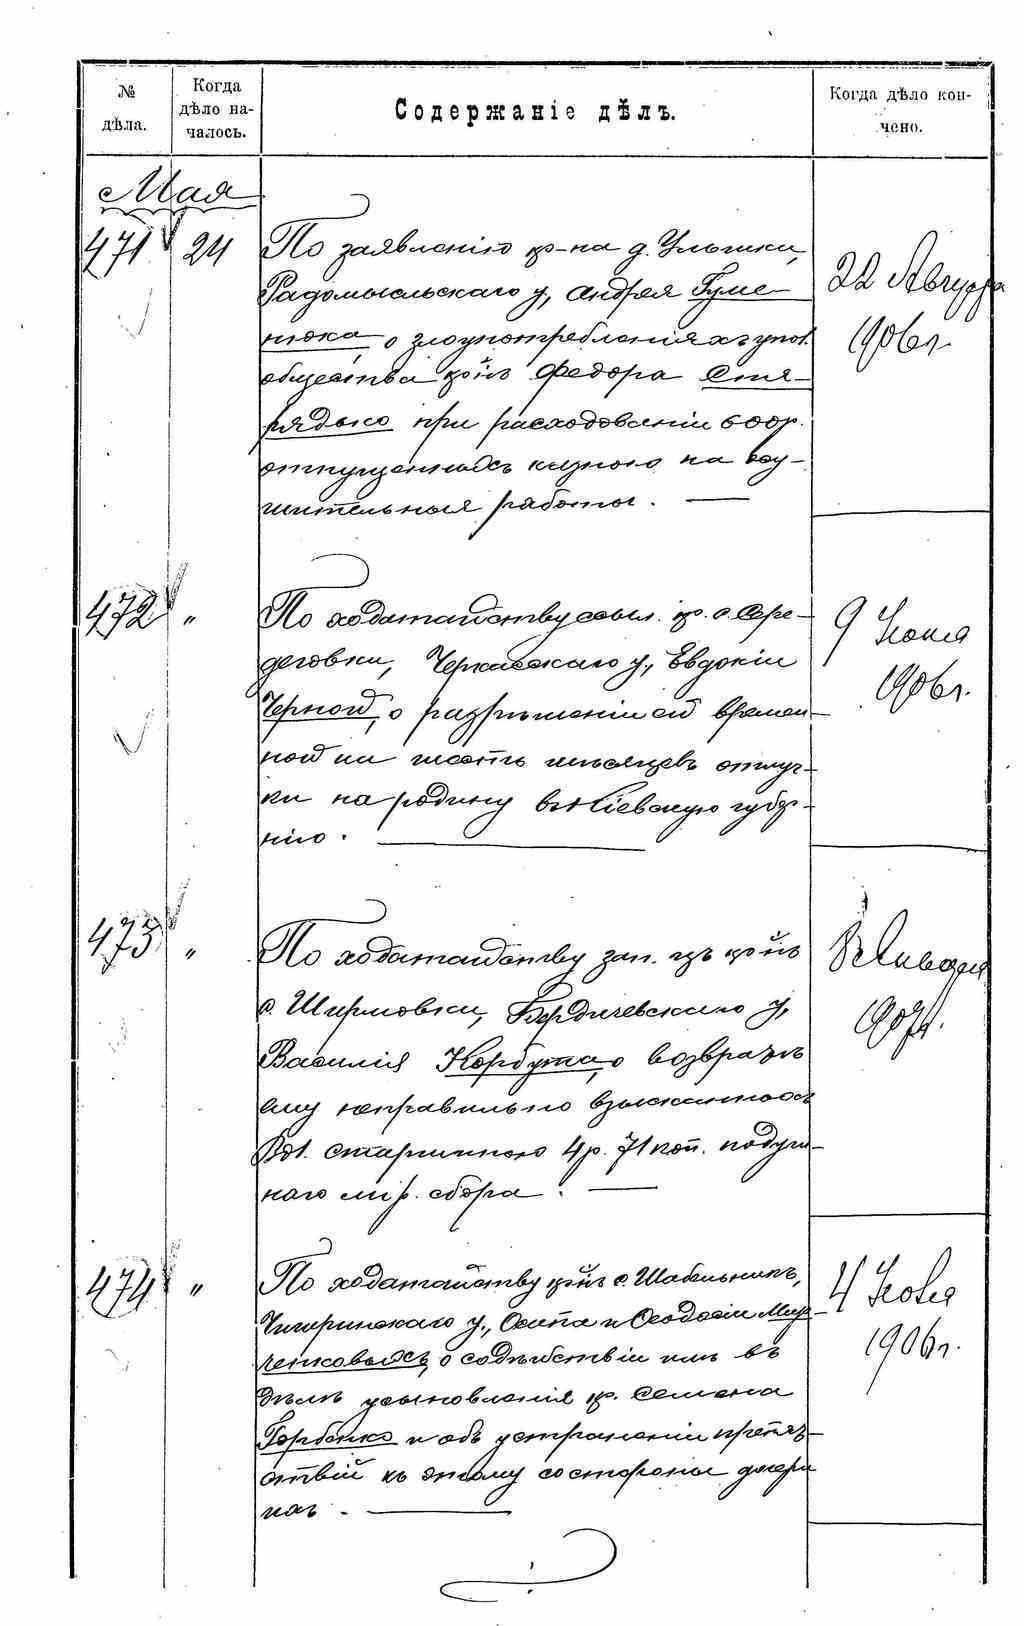 № дѣла.
Когда дѣло на-
чалось.
Содержаніе дѣлъ.
Когда дѣло кон-
чено.
Мая
471 24 По заявленію кр-на д. Ульшки,
Радомысльскаго у., Андрея Гуме-
нюка о злоупотребленіяхъ упол.
общества
Федора
при расходованіи 600 р.
отпущенныхъ казною на
работы.
22 Августа
1906 г.
472 " По ходатайству ссыл. кр. с. Сере-
деговки, Черкасскаго у., Евдокіи
Черной, о разрѣшеніи ей времен-
ной на шесть мѣсяцевъ отлуч-
ки на родину въ Кіевскую губер-
нію.
9 Іюня
1906 г.
473 " По ходатайству зап. изъ кр-нъ
с. Ширмовки, Бердичевскаго у.,
Василія Корбута, о возвратѣ
ему неправильно взысканныхъ
Вол. старшиною 4 р. 71 коп. подуш-
наго мір. сбора.
Января
1907 г.
474 " По ходатайству кр-нъ с. Шабельникъ,
Чигиринскаго у., Осипа и Ѳеодосіи Мир-
ченковыхъ, о содѣйствіи имъ въ
дѣлѣ усыновленія кр. Семена
Горбенко и объ устраненіи препят-
ствій къ этому со стороны дочери
ихъ.
4 Іюля
1906 г.